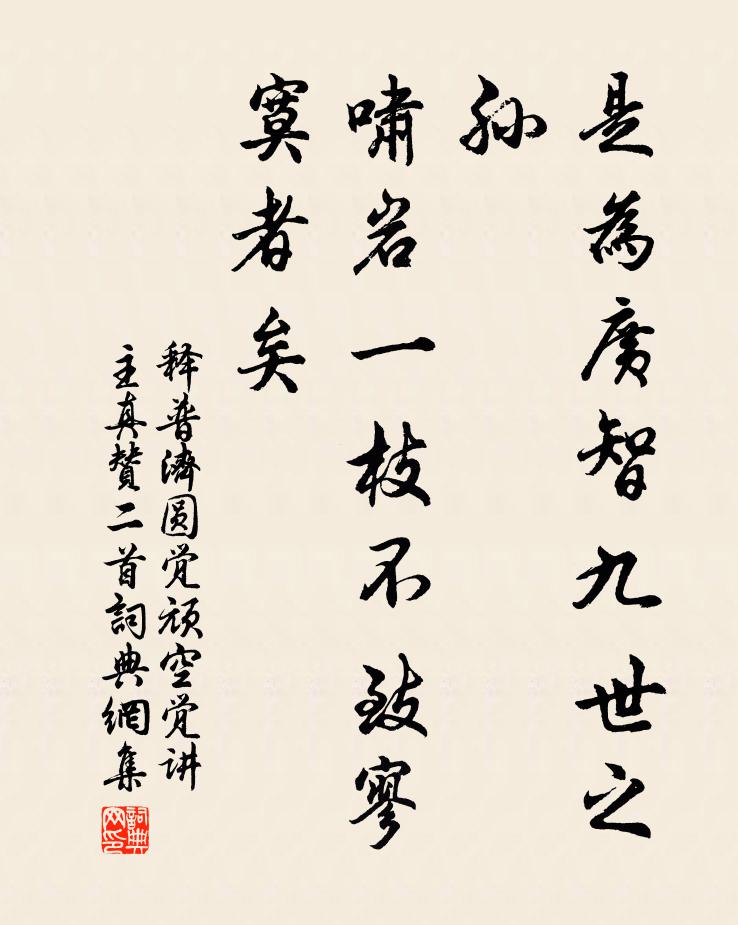 是為廣智九世之
孙
啸岩一枝不致寥
寞者矣
释普濟圆觉頑空觉讲
主真贊二首詞典網集
詞典
网印